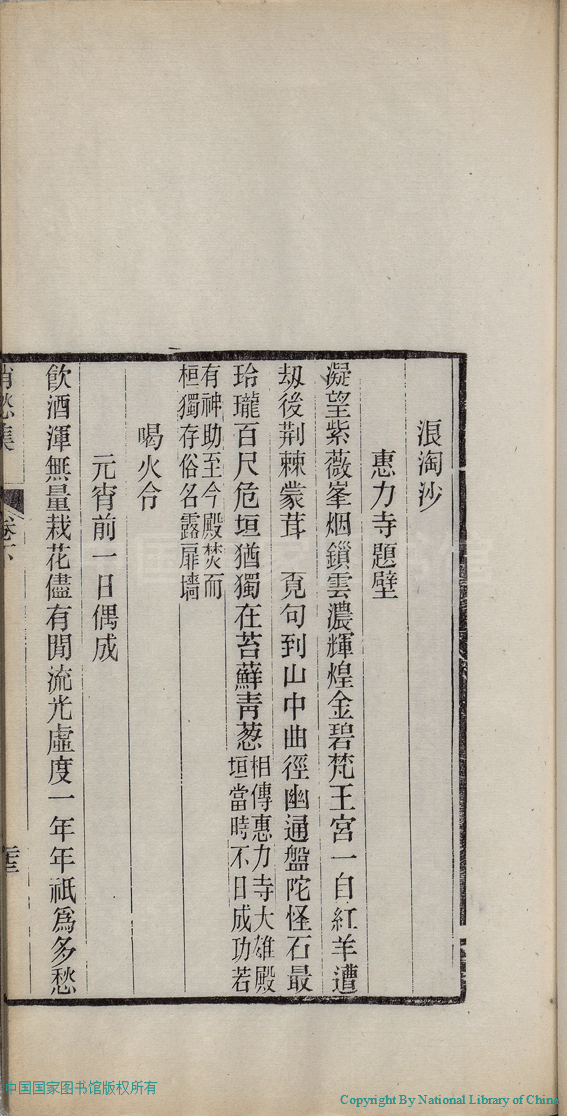 浪淘沙
惠力寺題壁
凝望紫薇峯烟鎖雲濃輝煌金碧梵王宮一自紅羊遭
刼後荆棘蒙茸　覔句到山中曲徑幽通盤陀怪石最
玲瓏百尺危垣猶獨在苔蘚靑葱相傳惠力寺大雄殿
垣當時不日成功若
有神助至今殿焚而
桓獨存俗名露扉墻
喝火令
元宵前一日偶成
飮酒渾無量栽花儘有閒流光虛度一年年祇爲多愁
消愁集
卷下
中国国家图书馆版权所有
Copyright By National Library of China